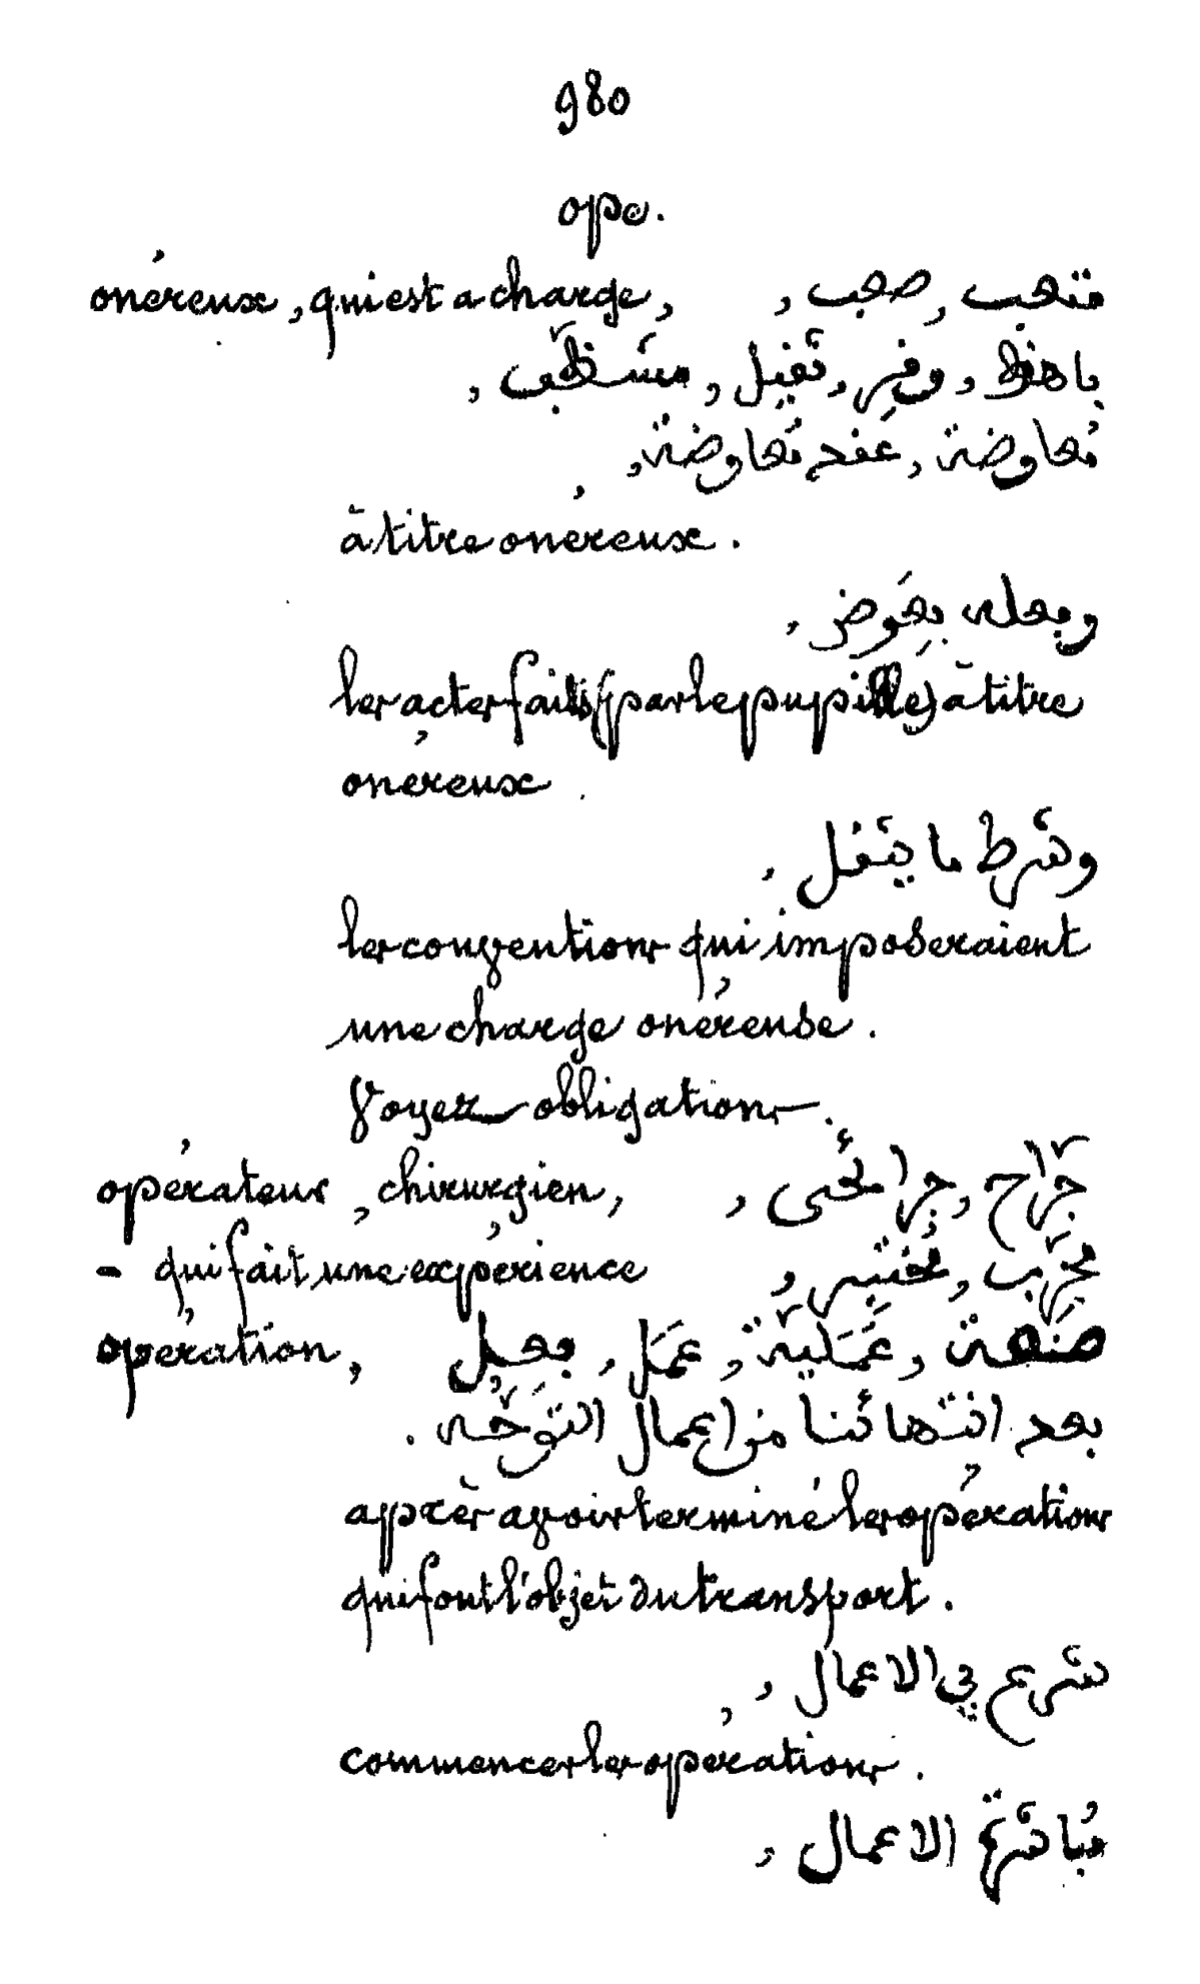 980
ope.
onéreux, qui est a charge, متعب, صعب,
باهظ, وفر, ثقيل, مستظعب,
مُعاوضة, عقد مُعاوضة,
à titre onéreux.
وبعله بِعَوض,
les actes faits (par le pupille) à titre
onéreux.
وشرط ما يثقل,
les conventions qui imposeraient
une charge onéreuse.
Voyez obligations.
opérateur, chirurgien, جرّاح, جرائحى,
- qui fait une expérience مجرّب, مُختبر,
opération, صَنعة, عَمَليّة, عمَل, بعل
بعد انتهائنا من اعمال التوجّه.
après avoir terminé les opérations
qui font l'objet du transport.
شرع في الاعمال,
commencer les opérations.
مُباشرة الاعمال,